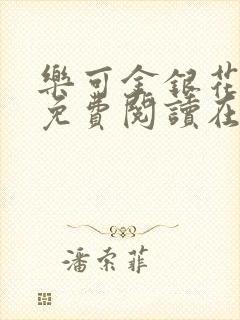 樂可金銀花
免費閱讀在
潘索菲